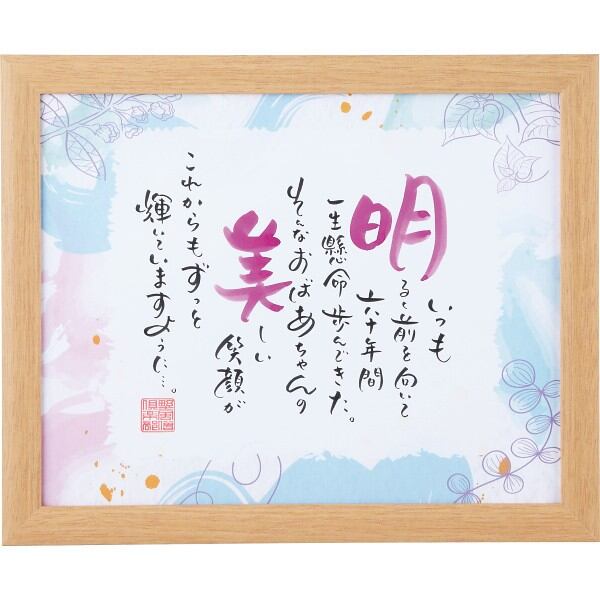 いつも
明るく前を向いて
六十年間
一生懸命歩んできた。
そんなおばあちゃんの
美しい笑顔が
これからもずっと
輝いていますように…。